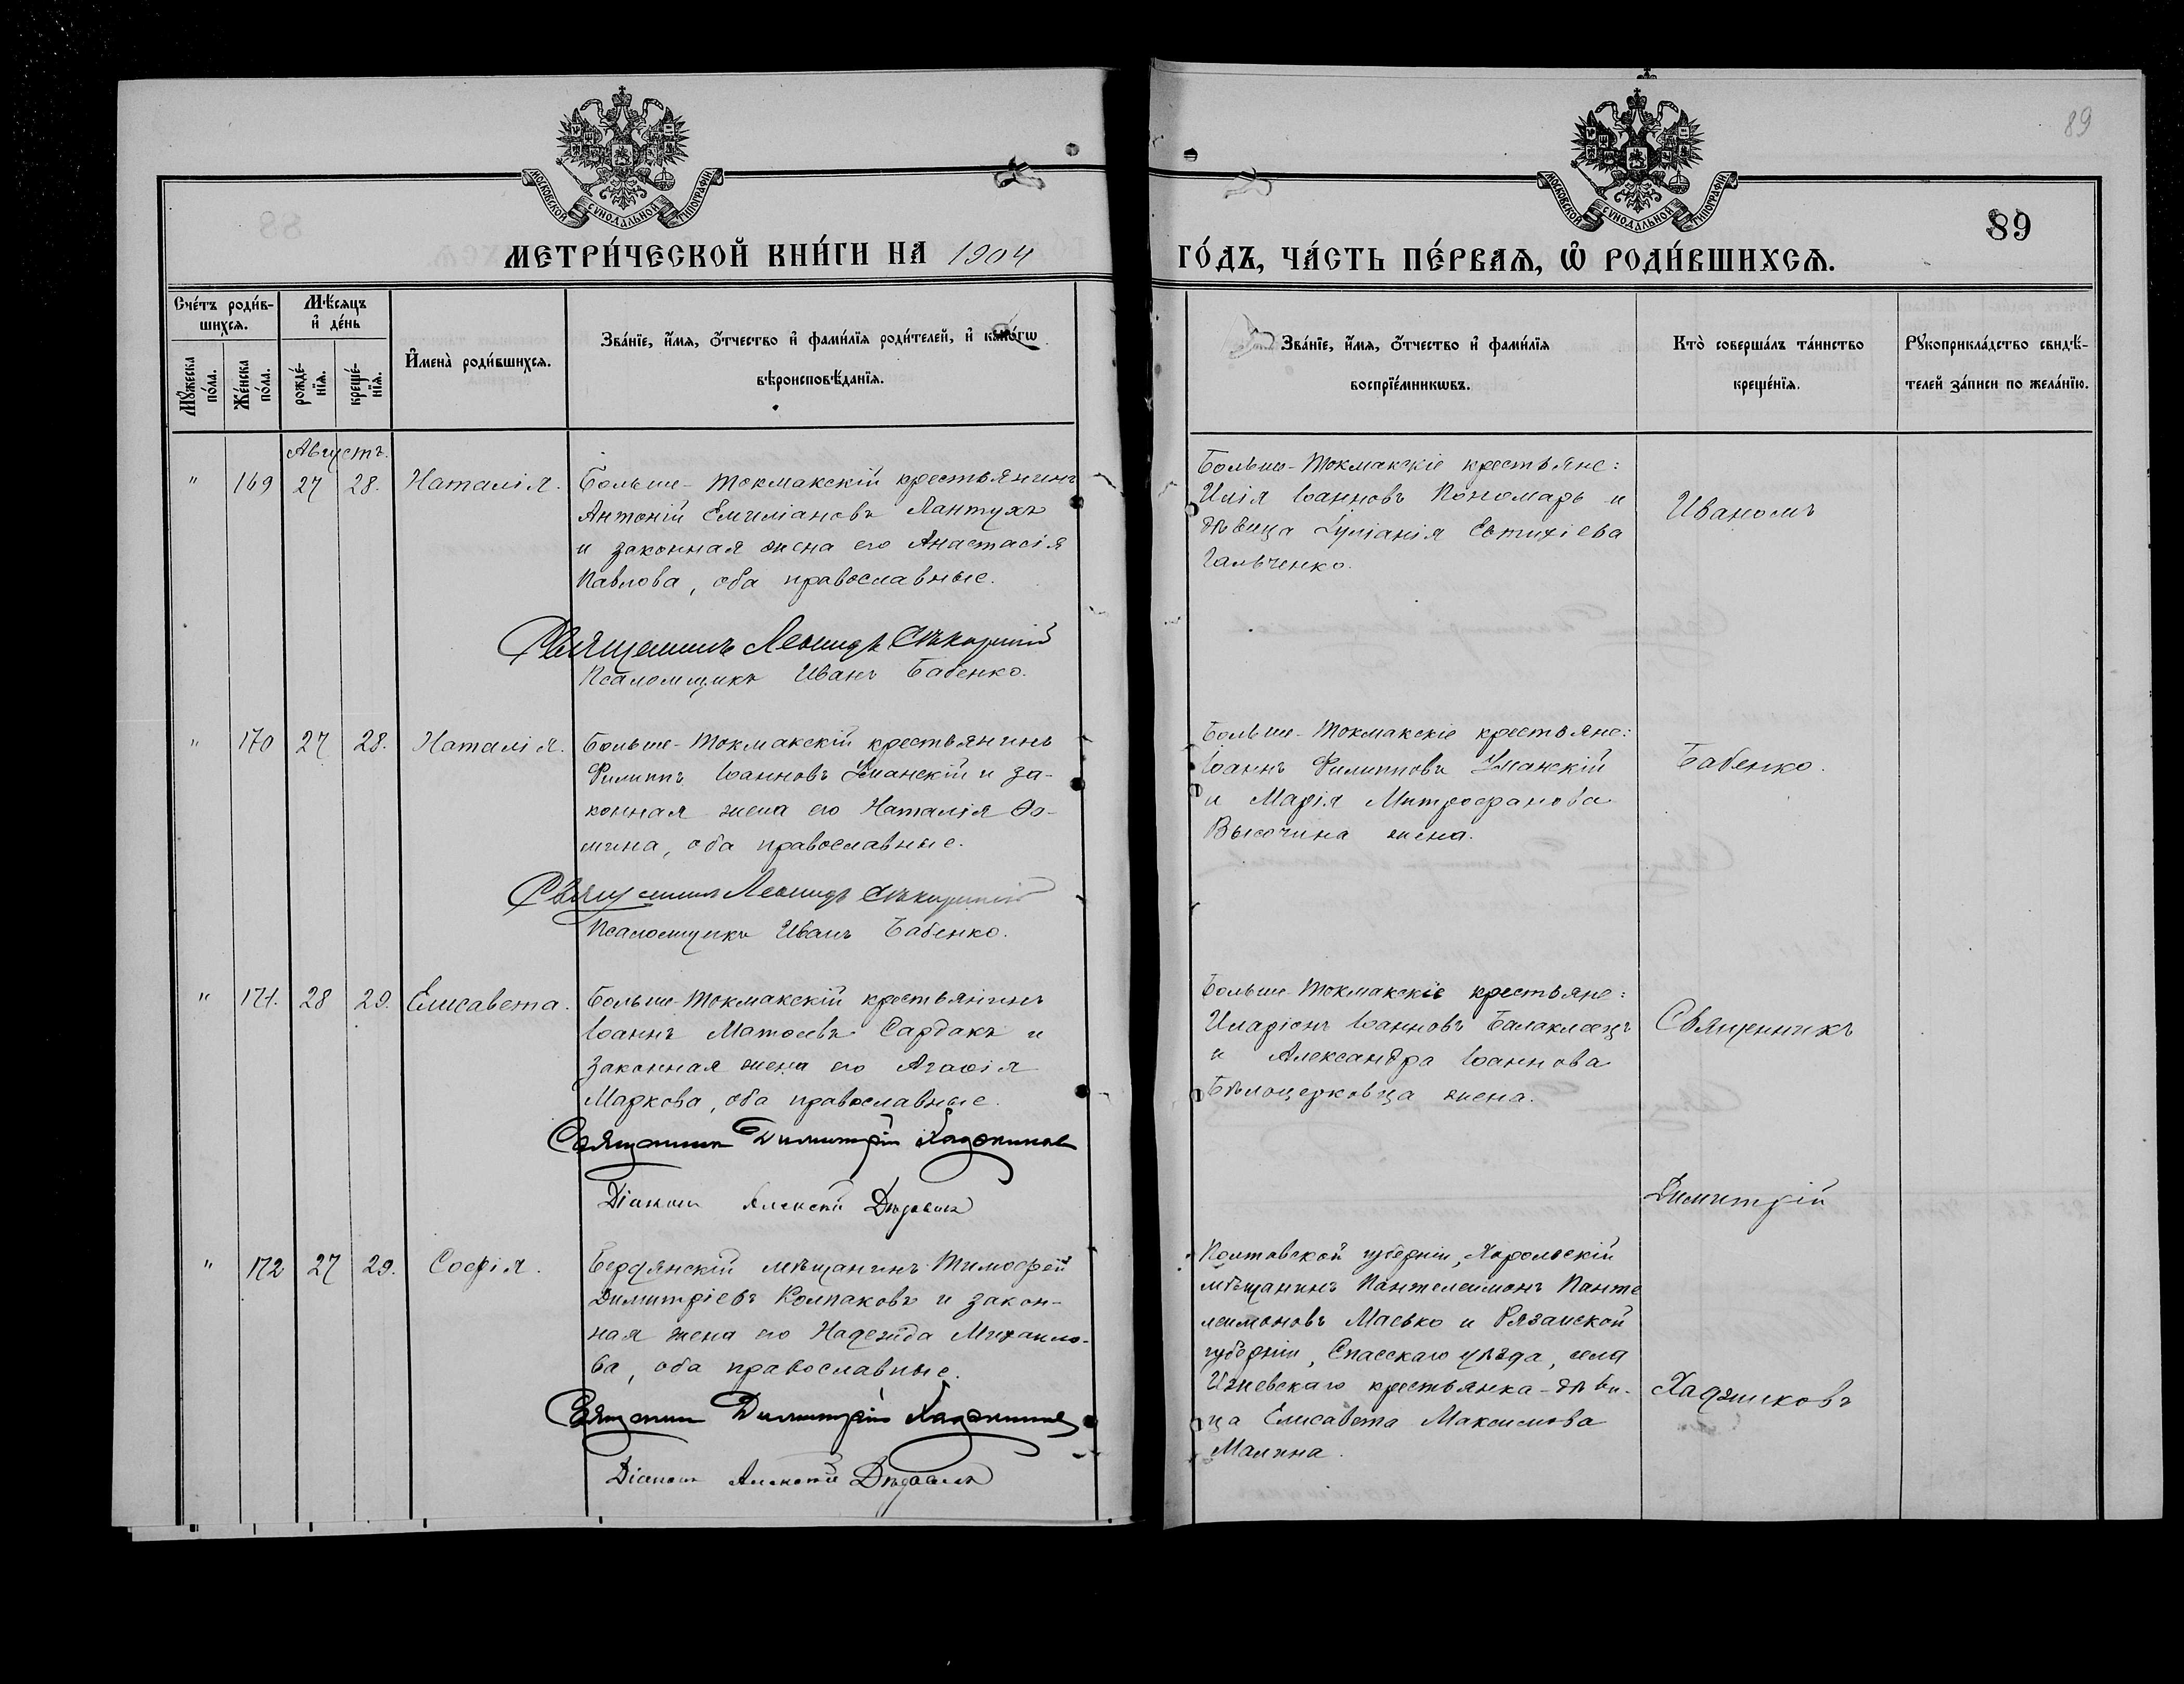 89
89
МОСКОВСКОЙ СѴНОДАЛЬНОЙ ТИПОГРАФІИ
МОСКОВСКОЙ СѴНОДАЛЬНОЙ ТИПОГРАФІИ
МЕТРИ́ЧЕСКОЙ КНИ́ГИ НА 1904
ГО́ДЪ, ЧА́СТЬ ПЕ́РВАѦ, Ѡ҆ РОДИ́ВШИХСѦ.
Сче́тъ роди́в-
шихсѧ.
Мꙋ́жеска по́ла.
Же́нска по́ла.
Мѣ́сѧцъ
и҆ де́нь
рожде́-
нїѧ.
креще́-
нїѧ.
И҆мена̀ роди́вшихсѧ.
Зва́нїе, и҆́мѧ, ѻ҆́тчество и҆ фами́лїѧ роди́телей, и҆
вѣроисповѣ́данїѧ.
Зва́нїе, и҆́мѧ, ѻ҆́тчество и҆ фами́лїѧ
воспрїе́мникѡвъ.
Кто̀ соверша́лъ та́инство
креще́нїѧ.
Рꙋкоприкла́дство свидѣ́-
телей за́писи по жела́нїю.
Августъ.
" 169 27 28. Наталія.
Больше-Токмакскій крестьянинъ
Антоній Емиліановъ Лантухъ
и законная жена его Анастасія
Павлова, оба православные.
Священникъ Леонидъ
Псаломщикъ Иванъ Бабенко.
Больше-Токмакскіе крестьяне:
Илія Іоанновъ Пономарь и
дѣвица Іуліанія Евтихіева
Гальченко.
Иваномъ
" 170 27 28. Наталія.
Больше-Токмакскій крестьянинъ
Филиппъ Іоанновъ Уманскій и за-
конная жена его Наталія Ѳо-
мина, оба православные.
Священникъ Леонидъ
Псаломщикъ Иванъ Бабенко.
Больше-Токмакскіе крестьяне:
Іоаннъ Филипповъ Уманскій
и Марія Митрофанова
Высочина жена.
Бабенко.
" 171. 28 29. Елисавета.
Больше-Токмакскій крестьянинъ
Іоаннъ Матѳеевъ Сардакъ и
законная жена его Агаѳія
Маркова, оба православные.
Священникъ Димитрій Хаджиковъ
Діаконъ Алексѣй
Больше-Токмакскіе крестьяне:
Иларіонъ Іоанновъ Балаклеецъ
и Александра Іоаннова
Бѣлоцерковца жена.
Священникъ
Димитрій
" 172 27 29. Софія.
Бердянскій мѣщанинъ Тимофей
Димитріевъ Колпаковъ и закон-
ная жена его Надежда Михаило-
ва, оба православные.
Священникъ Димитрій Хаджиковъ
Діаконъ Алексѣй
Полтавской губерніи, Хорольскій
мѣщанинъ Пантелеимонъ Панте
леимоновъ Масько и Рязанской
губерніи, Спасскаго уѣзда, села
Ижевскаго крестьянка-дѣви-
ца Елисавета Максимова
Малина.
Хаджиковъ